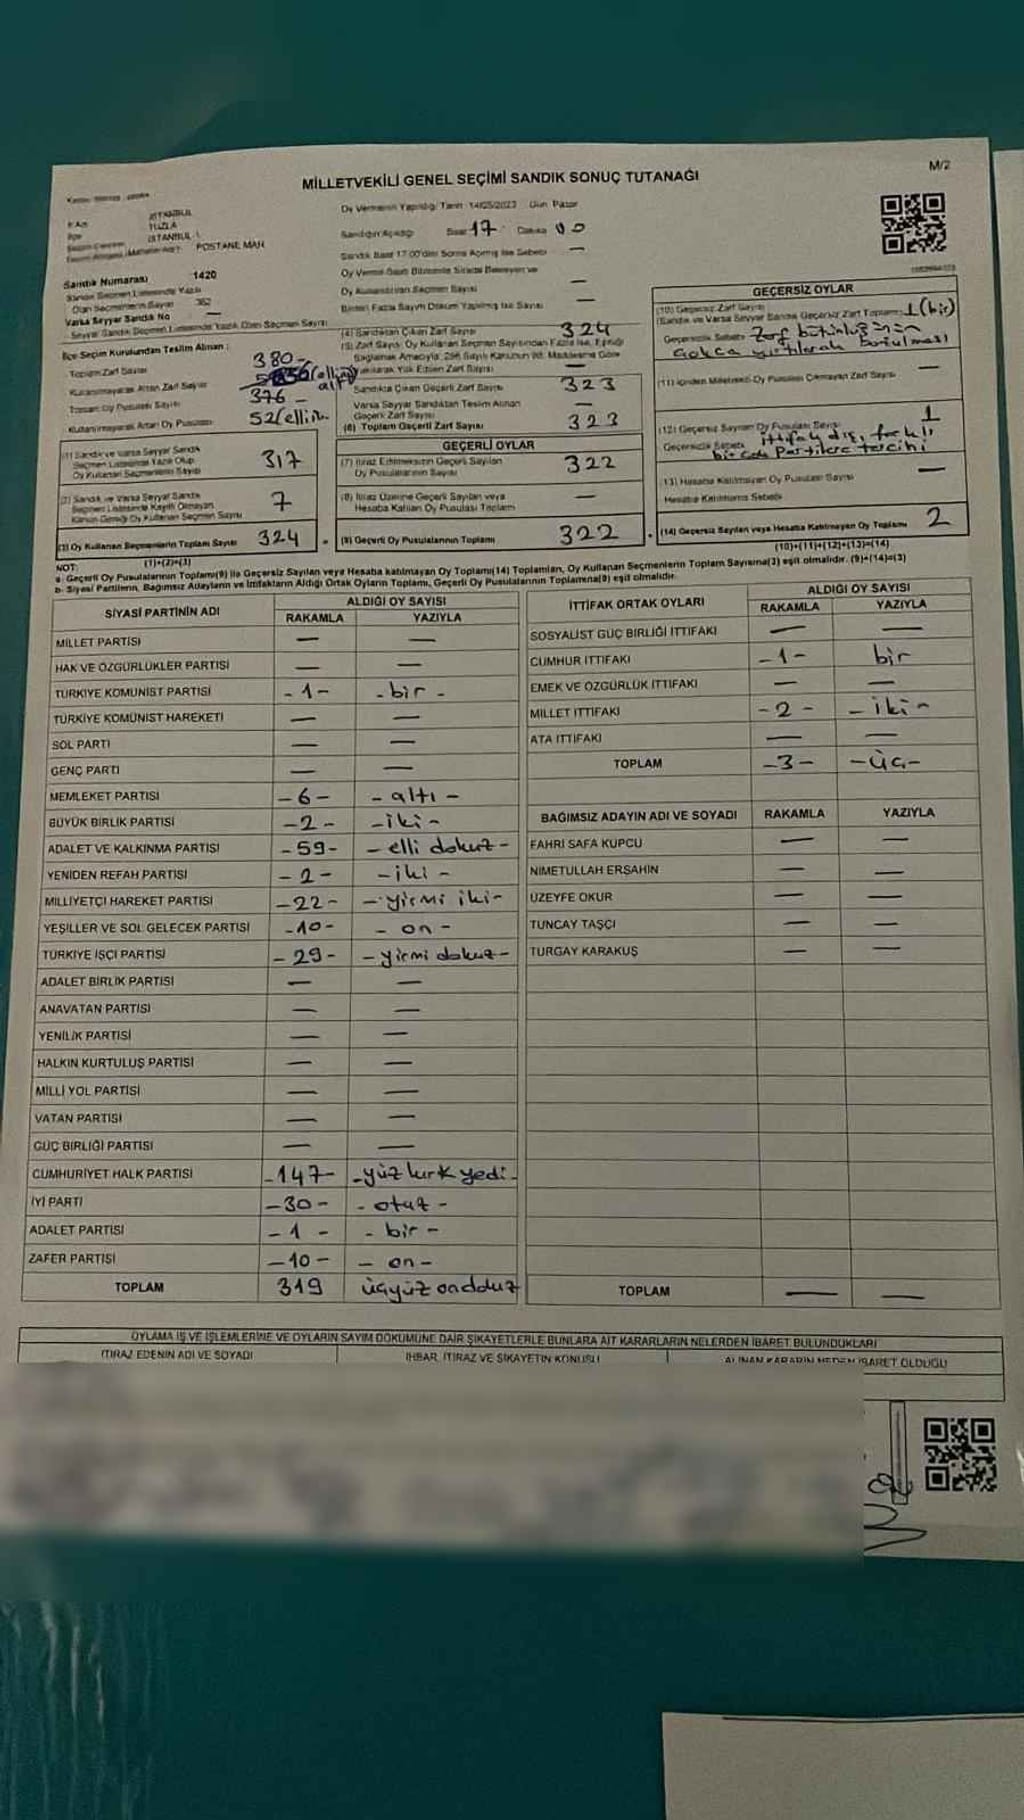 M/2
MİLLETVEKİLİ GENEL SEÇİMİ SANDIK SONUÇ TUTANAĞI
İSTANBUL
TUZLA
İSTANBUL-1
POSTANE MAH
Sandık Numarası 1420
Varsa Seyyar Sandık No —
İlçe Seçim Kurulundan Teslim Alınan :
Toplam Zarf Sayısı 380-
Kullanılmayarak Artan Zarf Sayısı
376 -
Kullanılmayarak Artan Oy Pusulası 52
(1) Sandık ve Varsa Seyyar Sandık
Seçmen Listesinde Yazılı Olup
Oy Kullanan Seçmenlerin Sayısı 317
(2) Sandık ve Varsa Seyyar Sandık
Seçmen Listesinde Kayıtlı Olmayan
Kanun Gereği Oy Kullanan Seçmen Sayısı 7
(3) Oy Kullanan Seçmenlerin Toplam Sayısı 324
(1)+(2)=(3)
Oy Vermenin Yapıldığı Tarih 14/05/2023 Gün Pazar
Sandığın Açıldığı Saat 17 Dakika 00
Sandık Saat 17.00'den Sonra Açılmış İse Sebebi —
(4) Sandıktan Çıkan Zarf Sayısı 324
Sandıkta Çıkan Geçerli Zarf Sayısı 323
Varsa Seyyar Sandıktan Teslim Alınan
Geçerli Zarf Sayısı —
(6) Toplam Geçerli Zarf Sayısı 323
GEÇERLİ OYLAR
(7) İtiraz Edilmeksizin Geçerli Sayılan
Oy Pusulalarının Sayısı 322
(8) İtiraz Üzerine Geçerli Sayılan veya
Hesaba Katılan Oy Pusulası Toplamı —
(9) Geçerli Oy Pusulalarının Toplamı 322
GEÇERSİZ OYLAR
(10) Geçersiz Zarf Sayısı
(Sandık ve Varsa Seyyar Sandık Geçersiz Zarf Toplamı) 1 (bir)
Geçersizlik Sebebi Zarf bütünlüğünün
açıkça yırtılarak bozulması
(11) İçinden Milletvekili Oy Pusulası Çıkmayan Zarf Sayısı —
(12) Geçersiz Sayılan Oy Pusulası Sayısı 1
Geçersizlik Sebebi ittifak dışı farklı
birçok partilere tercihi
(13) Hesaba Katılmayan Oy Pusulası Sayısı —
Hesaba Katılmama Sebebi
(14) Geçersiz Sayılan veya Hesaba Katılmayan Oy Toplamı 2
(10)+(11)+(12)+(13)=(14)
NOT:
a- Geçerli Oy Pusulalarının Toplamı(9) ile Geçersiz Sayılan veya Hesaba Katılmayan Oy Toplamı(14) Toplamları, Oy Kullanan Seçmenlerin Toplam Sayısına(3) eşit olmalıdır. (9)+(14)=(3)
b- Siyasi Partilerin, Bağımsız Adayların ve İttifakların Aldığı Ortak Oyların Toplamı, Geçerli Oy Pusulalarının Toplamına(9) eşit olmalıdır.
SİYASİ PARTİNİN ADI ALDIĞI OY SAYISI
RAKAMLA YAZIYLA
MİLLET PARTİSİ — —
HAK VE ÖZGÜRLÜKLER PARTİSİ — —
TÜRKİYE KOMÜNİST PARTİSİ -1- -bir-
TÜRKİYE KOMÜNİST HAREKETİ — —
SOL PARTİ — —
GENÇ PARTİ — —
MEMLEKET PARTİSİ -6- -altı-
BÜYÜK BİRLİK PARTİSİ -2- -iki-
ADALET VE KALKINMA PARTİSİ -59- -elli dokuz-
YENİDEN REFAH PARTİSİ -2- -iki-
MİLLİYETÇİ HAREKET PARTİSİ -22- -yirmi iki-
YEŞİLLER VE SOL GELECEK PARTİSİ -10- -on-
TÜRKİYE İŞÇİ PARTİSİ -29- -yirmi dokuz-
ADALET BİRLİK PARTİSİ — —
ANAVATAN PARTİSİ — —
YENİLİK PARTİSİ — —
HALKIN KURTULUŞ PARTİSİ — —
MİLLİ YOL PARTİSİ — —
VATAN PARTİSİ — —
GÜÇ BİRLİĞİ PARTİSİ — —
CUMHURİYET HALK PARTİSİ -147- -yüz kırk yedi-
İYİ PARTİ -30- -otuz-
ADALET PARTİSİ -1- -bir-
ZAFER PARTİSİ -10- -on-
TOPLAM 319 üçyüz ondokuz
İTTİFAK ORTAK OYLARI ALDIĞI OY SAYISI
RAKAMLA YAZIYLA
SOSYALİST GÜÇ BİRLİĞİ İTTİFAKI — —
CUMHUR İTTİFAKI -1- bir
EMEK VE ÖZGÜRLÜK İTTİFAKI — —
MİLLET İTTİFAKI -2- -iki-
ATA İTTİFAKI — —
TOPLAM -3- -üç-
BAĞIMSIZ ADAYIN ADI VE SOYADI RAKAMLA YAZIYLA
FAHRİ SAFA KÜPCÜ — —
NİMETULLAH ERŞAHİN — —
ÜZEYFE OKUR — —
TUNCAY TAŞÇI — —
TURGAY KARAKUŞ — —
TOPLAM — —
OYLAMA İŞ VE İŞLEMLERİNE VE OYLARIN SAYIM DÖKÜMÜNE DAİR ŞİKAYETLERLE BUNLARA AİT KARARLARIN NELERDEN İBARET BULUNDUKLARI
İTİRAZ EDENİN ADI VE SOYADI İHBAR, İTİRAZ VE ŞİKAYETİN KONUSU ALINAN KARARIN NEDEN İBARET OLDUĞU